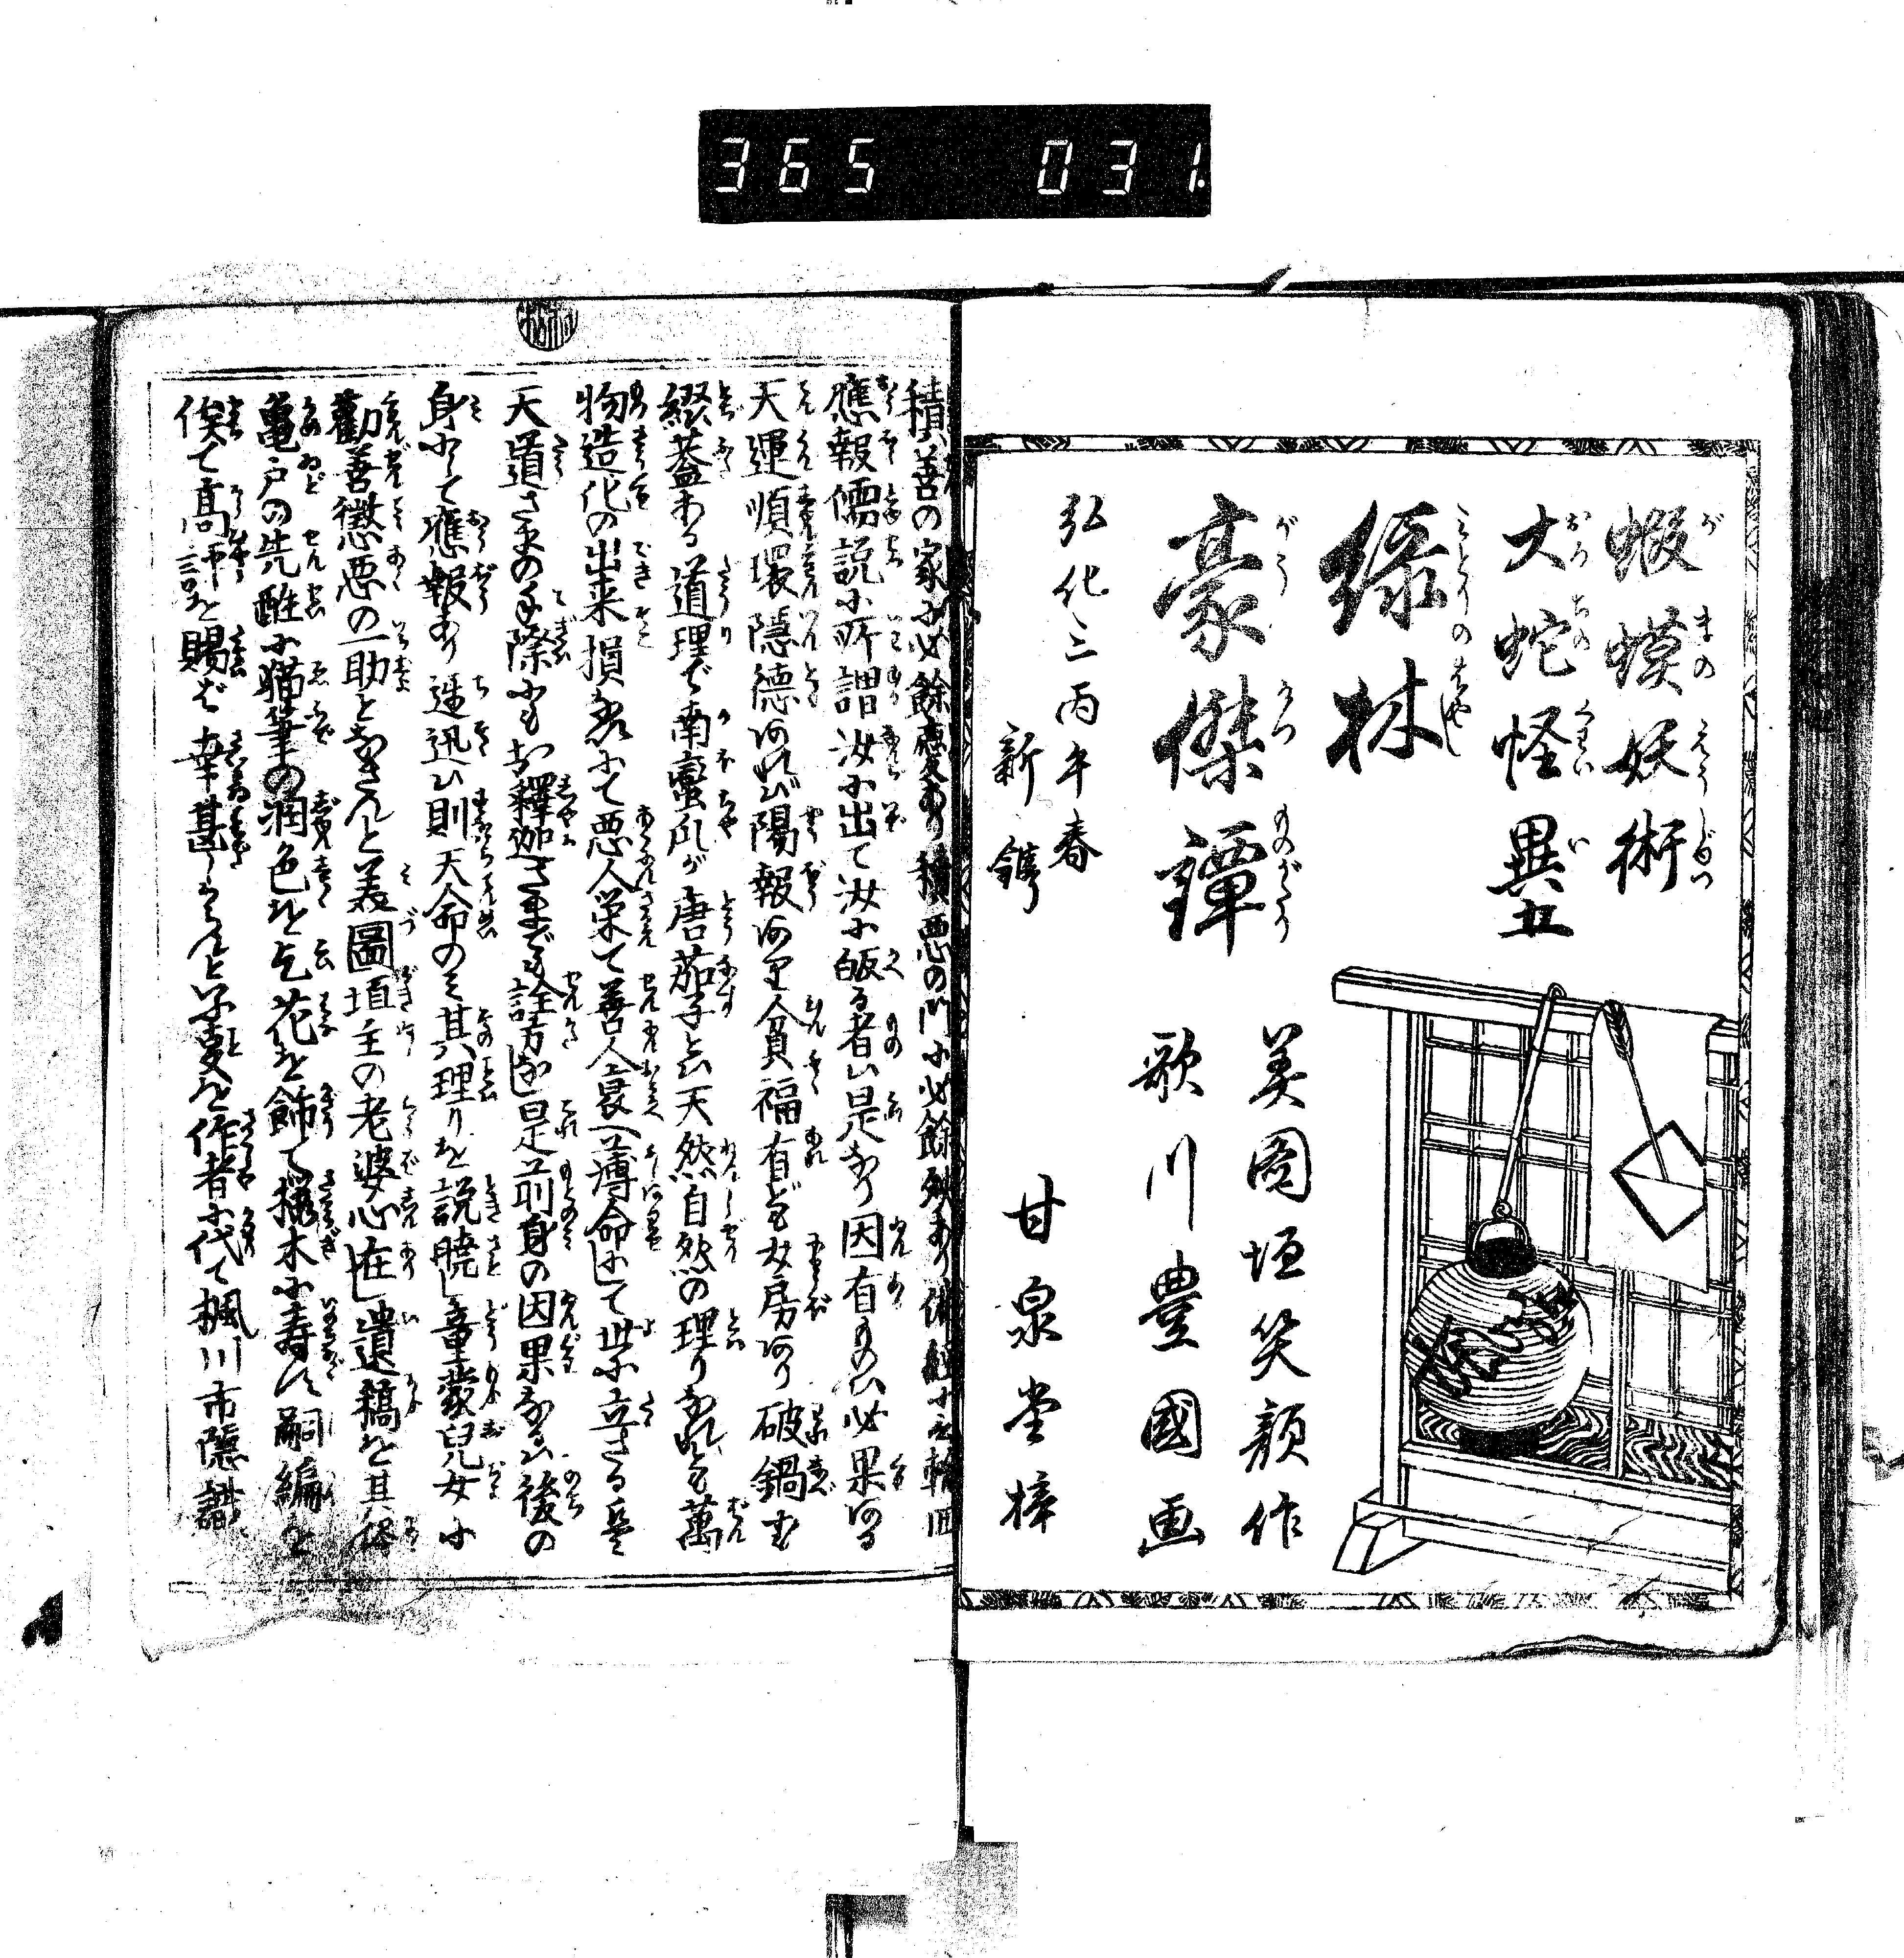 365 031
蝦蟇妖術
がまのえうじゆつ
大蛇怪異
おろちのくわいい
緑林
みどりのはやし
豪傑譚
がうけつものがたり
美圖垣笑顔作
歌川豊國画
弘化三丙午春
新鐫
甘泉堂梓
積善の家に必餘慶あり積悪の門に必餘殃あり
應報儒説に所謂汝に出て汝に皈る者ハ是なり因有ものハ必果ある
天運順環隠徳あれバ陽報あり人貧福有ども女房あり破鍋も
綴蓋ある道理で南蛮瓜が唐茄子とハ天然自然の理りなれども萬
物造化の出来損ねにて悪人栄て善人衰へ薄命にして世に立ざる是
天道さまの手際にもお釋迦さまでも詮方なし是前身の因果なるハ後の
身にて應報あり遅迅ハ則天命のミ其理りを説暁し童蒙児女に
勸善懲悪の一助となさんと美圖垣主の老婆心在し遺稿を其侭
亀戸の先醒に猫筆の潤色を乞花を飾て桜木に壽す嗣編を
俟て高評を賜バ幸甚しからんと八字文を作者に代て楓川市隠識